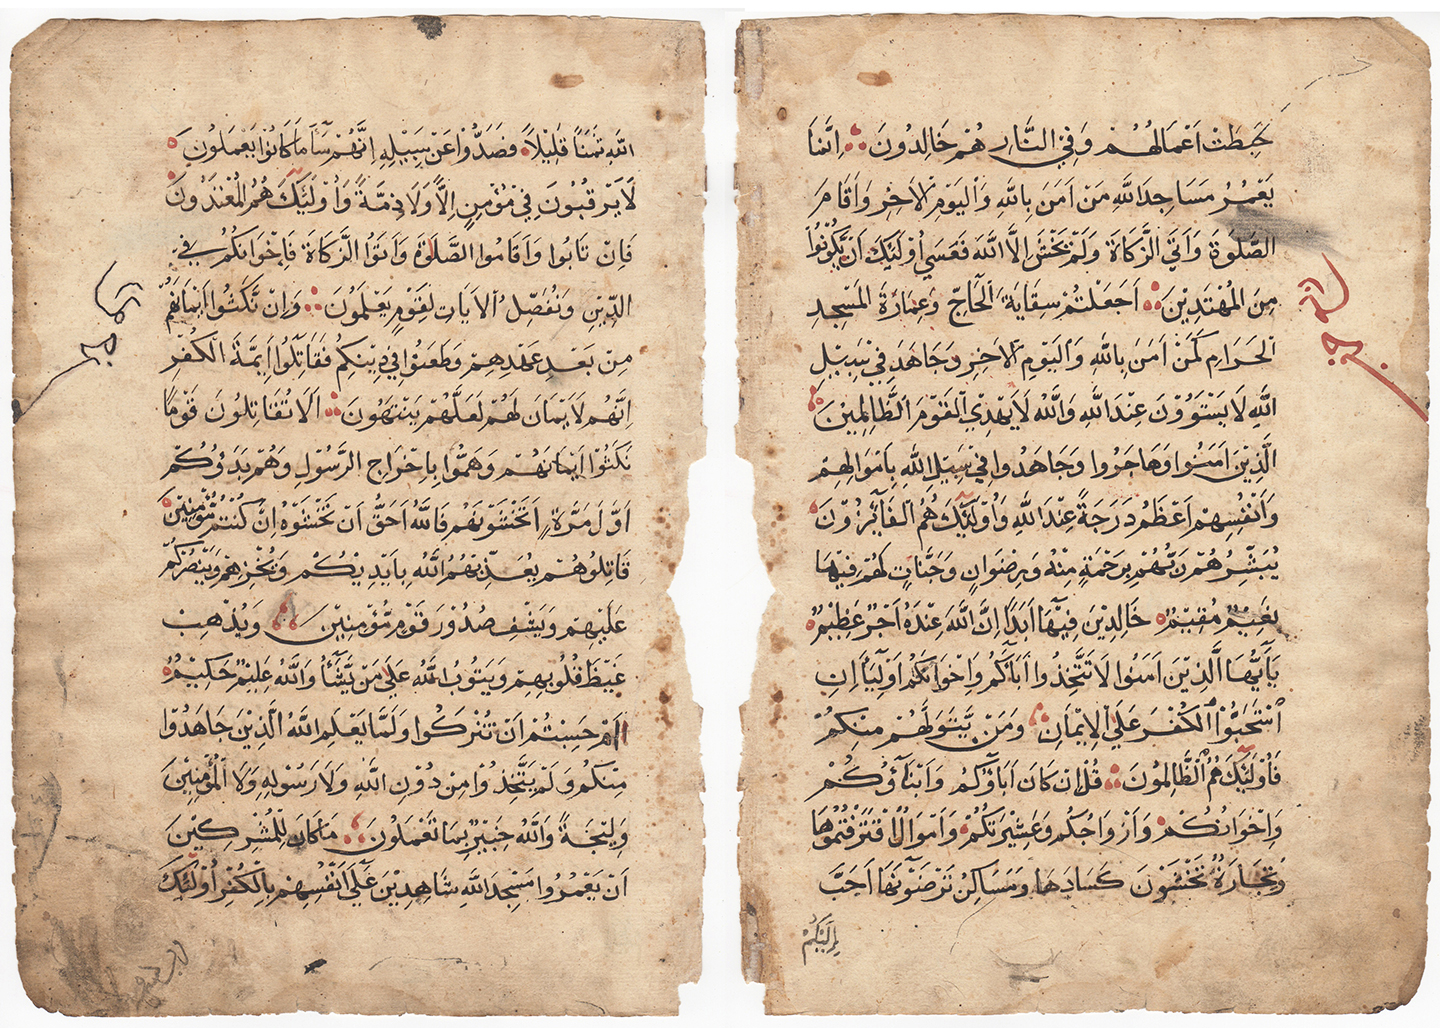 اللهِ ثَمَنًا قَلِيْلًا فَصَدُّوْا عَنْ سَبِيْلِهِ اِنَّهُمْ سَآءَ مَا كَانُوْا يَعْمَلُوْنَ
لَا يَرْقُبُوْنَ فِيْ مُؤْمِنٍ اِلًّا وَلَا ذِمَّةً وَاُوْلَئِكَ هُمُ الْمُعْتَدُوْنَ
فَاِنْ تَابُوا وَاَقَامُوا الصَّلٰوةَ وَاٰتَوُا الزَّكَاةَ فَاِخْوَانُكُمْ فِي
الدِّيْنِ وَنُفَصِّلُ الْاٰيَاتِ لِقَوْمٍ يَعْلَمُوْنَ وَاِنْ نَّكَثُوْا اَيْمَانَهُمْ
مِنْ بَعْدِ عَهْدِهِمْ وَطَعَنُوْا فِيْ دِيْنِكُمْ فَقَاتِلُوْا اَئِمَّةَ الْكُفْرِ
اِنَّهُمْ لَا اَيْمَانَ لَهُمْ لَعَلَّهُمْ يَنْتَهُوْنَ اَلَا تُقَاتِلُوْنَ قَوْمًا
نَكَثُوْا اَيْمَانَهُمْ وَهَمُّوْا بِاِخْرَاجِ الرَّسُوْلِ وَهُمْ بَدَؤُكُمْ
اَوَّلَ مَرَّةٍ اَتَخْشَوْنَهُمْ فَاللّٰهُ اَحَقُّ اَنْ تَخْشَوْهُ اِنْ كُنْتُمْ مُؤْمِنِيْنَ
قَاتِلُوْهُمْ يُعَذِّبْهُمُ اللّٰهُ بِاَيْدِيْكُمْ وَيُخْزِهِمْ وَيَنْصُرْكُمْ
عَلَيْهِمْ وَيَشْفِ صُدُوْرَ قَوْمٍ مُّؤْمِنِيْنَ وَيُذْهِبْ
غَيْظَ قُلُوْبِهِمْ وَيَتُوْبُ اللّٰهُ عَلَى مَنْ يَّشَآءُ وَاللّٰهُ عَلِيْمٌ حَكِيْمٌ
اَمْ حَسِبْتُمْ اَنْ تُتْرَكُوا وَلَمَّا يَعْلَمِ اللّٰهُ الَّذِيْنَ جَاهَدُوْا
مِنْكُمْ وَلَمْ يَتَّخِذُوْا مِنْ دُوْنِ اللّٰهِ وَلَا رَسُوْلِهِ وَلَا الْمُؤْمِنِيْنَ
وَلِيْجَةً وَاللّٰهُ خَبِيْرٌ بِمَا تَعْمَلُوْنَ مَا كَانَ لِلْمُشْرِكِيْنَ
اَنْ يَعْمُرُوا مَسْجِدَ اللّٰهِ شَاهِدِيْنَ عَلٰٓى اَنْفُسِهِمْ بِالْكُفْرِ اُوْلَئِكَ
حَبِطَتْ اَعْمَالُهُمْ وَفِي النَّارِ هُمْ خَالِدُوْنَ اِنَّمَا
يَعْمُرُ مَسَاجِدَ اللّٰهِ مَنْ اٰمَنَ بِاللّٰهِ وَالْيَوْمِ الْاٰخِرِ وَاَقَامَ
الصَّلٰوةَ وَاٰتَى الزَّكَاةَ وَلَمْ يَخْشَ اِلَّا اللّٰهَ فَعَسَى اُوْلَئِكَ اَنْ يَّكُوْنُوْا
مِنَ الْمُهْتَدِيْنَ اَجَعَلْتُمْ سِقَايَةَ الْحَآجِّ وَعِمَارَةَ الْمَسْجِدِ
الْحَرَامِ كَمَنْ اٰمَنَ بِاللّٰهِ وَالْيَوْمِ الْاٰخِرِ وَجَاهَدَ فِيْ سَبِيْلِ
اللّٰهِ لَا يَسْتَوُوْنَ عِنْدَ اللّٰهِ وَاللّٰهُ لَا يَهْدِي الْقَوْمَ الظَّالِمِيْنَ
الَّذِيْنَ اٰمَنُوْا وَهَاجَرُوا وَجَاهَدُوا فِيْ سَبِيْلِ اللّٰهِ بِاَمْوَالِهِمْ
وَاَنْفُسِهِمْ اَعْظَمُ دَرَجَةً عِنْدَ اللّٰهِ وَاُوْلَٓئِكَ هُمُ الْفَآئِزُوْنَ
يُبَشِّرُهُمْ رَبُّهُمْ بِرَحْمَةٍ مِنْهُ وَرِضْوَانٍ وَجَنَّاتٍ لَهُمْ فِيْهَا
نَعِيْمٌ مُقِيْمٌ خَالِدِيْنَ فِيْهَا اَبَدًا اِنَّ اللّٰهَ عِنْدَهُ اَجْرٌ عَظِيْمٌ
يَآاَيُّهَا الَّذِيْنَ اٰمَنُوا لَا تَتَّخِذُوا اٰبَآءَكُمْ وَاِخْوَانَكُمْ اَوْلِيَآءَ اِنِ
اسْتَحَبُّوْا الْكُفْرَ عَلَى الْاِيْمَانِ وَمَنْ يَّتَوَلَّهُمْ مِنْكُمْ
فَاُوْلَٓئِكَ هُمُ الظَّالِمُوْنَ قُلْ اِنْ كَانَ اٰبَاؤُكُمْ وَاَبْنَآؤُكُمْ
وَاِخْوَانُكُمْ وَاَزْوَاجُكُمْ وَعَشِيْرَتُكُمْ وَاَمْوَالٌ اقْتَرَفْتُمُوْهَا
وَتِجَارَةٌ تَخْشَوْنَ كَسَادَهَا وَمَسَاكِنُ تَرْضَوْنَهَا اَحَبَّ
اِلَيْكُمْ